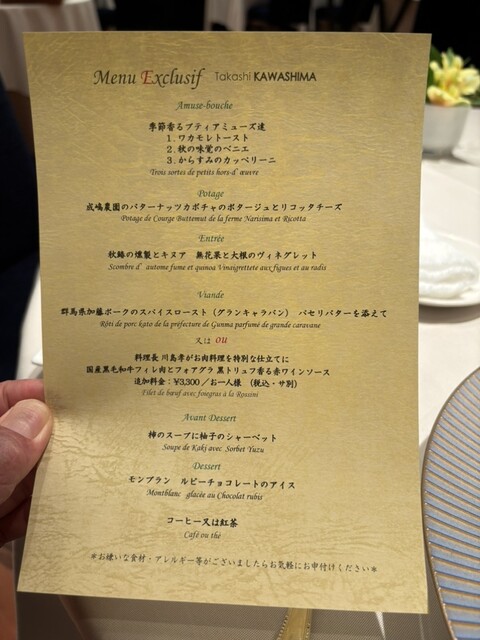 Menu Exclusif Takashi KAWASHIMA
Amuse-bouche
季節香るプティアミューズ達
1. ワカモレトースト
2. 秋の味覚のベニエ
3. からすみのカッペリーニ
Trois sortes de petits hors-d'œuvre
Potage
成嶋農園のバターナッツカボチャのポタージュとリコッタチーズ
Potage de Courge Butternut de la ferme Narisima et Ricotta
Entrée
秋鯖の燻製とキヌア 無花果と大根のヴィネグレット
Scombre d'autome fume et quinoa Vinaigrettete aux figues et au radis
Viande
群馬県加藤ポークのスパイスロースト（グランキャラバン） パセリバターを添えて
Rôti de porc kato de la préfecture de Gunma parfumé de grande caravane
又は ou
料理長 川島孝がお肉料理を特別な仕立てに
国産黒毛和牛フィレ肉とフォアグラ 黒トリュフ香る赤ワインソース
追加料金：¥3,300／お一人様 （税込・サ別）
Filet de bœuf avec foiegras à la Rossini
Avant Dessert
柿のスープに柚子のシャーベット
Soupe de Kaki avec Sorbet Yuzu
Dessert
モンブラン ルビーチョコレートのアイス
Montblanc glacée au Chocolat rubis
コーヒー又は紅茶
Café ou thé
＊お嫌いな食材・アレルギー等がございましたらお気軽にお申付けください＊